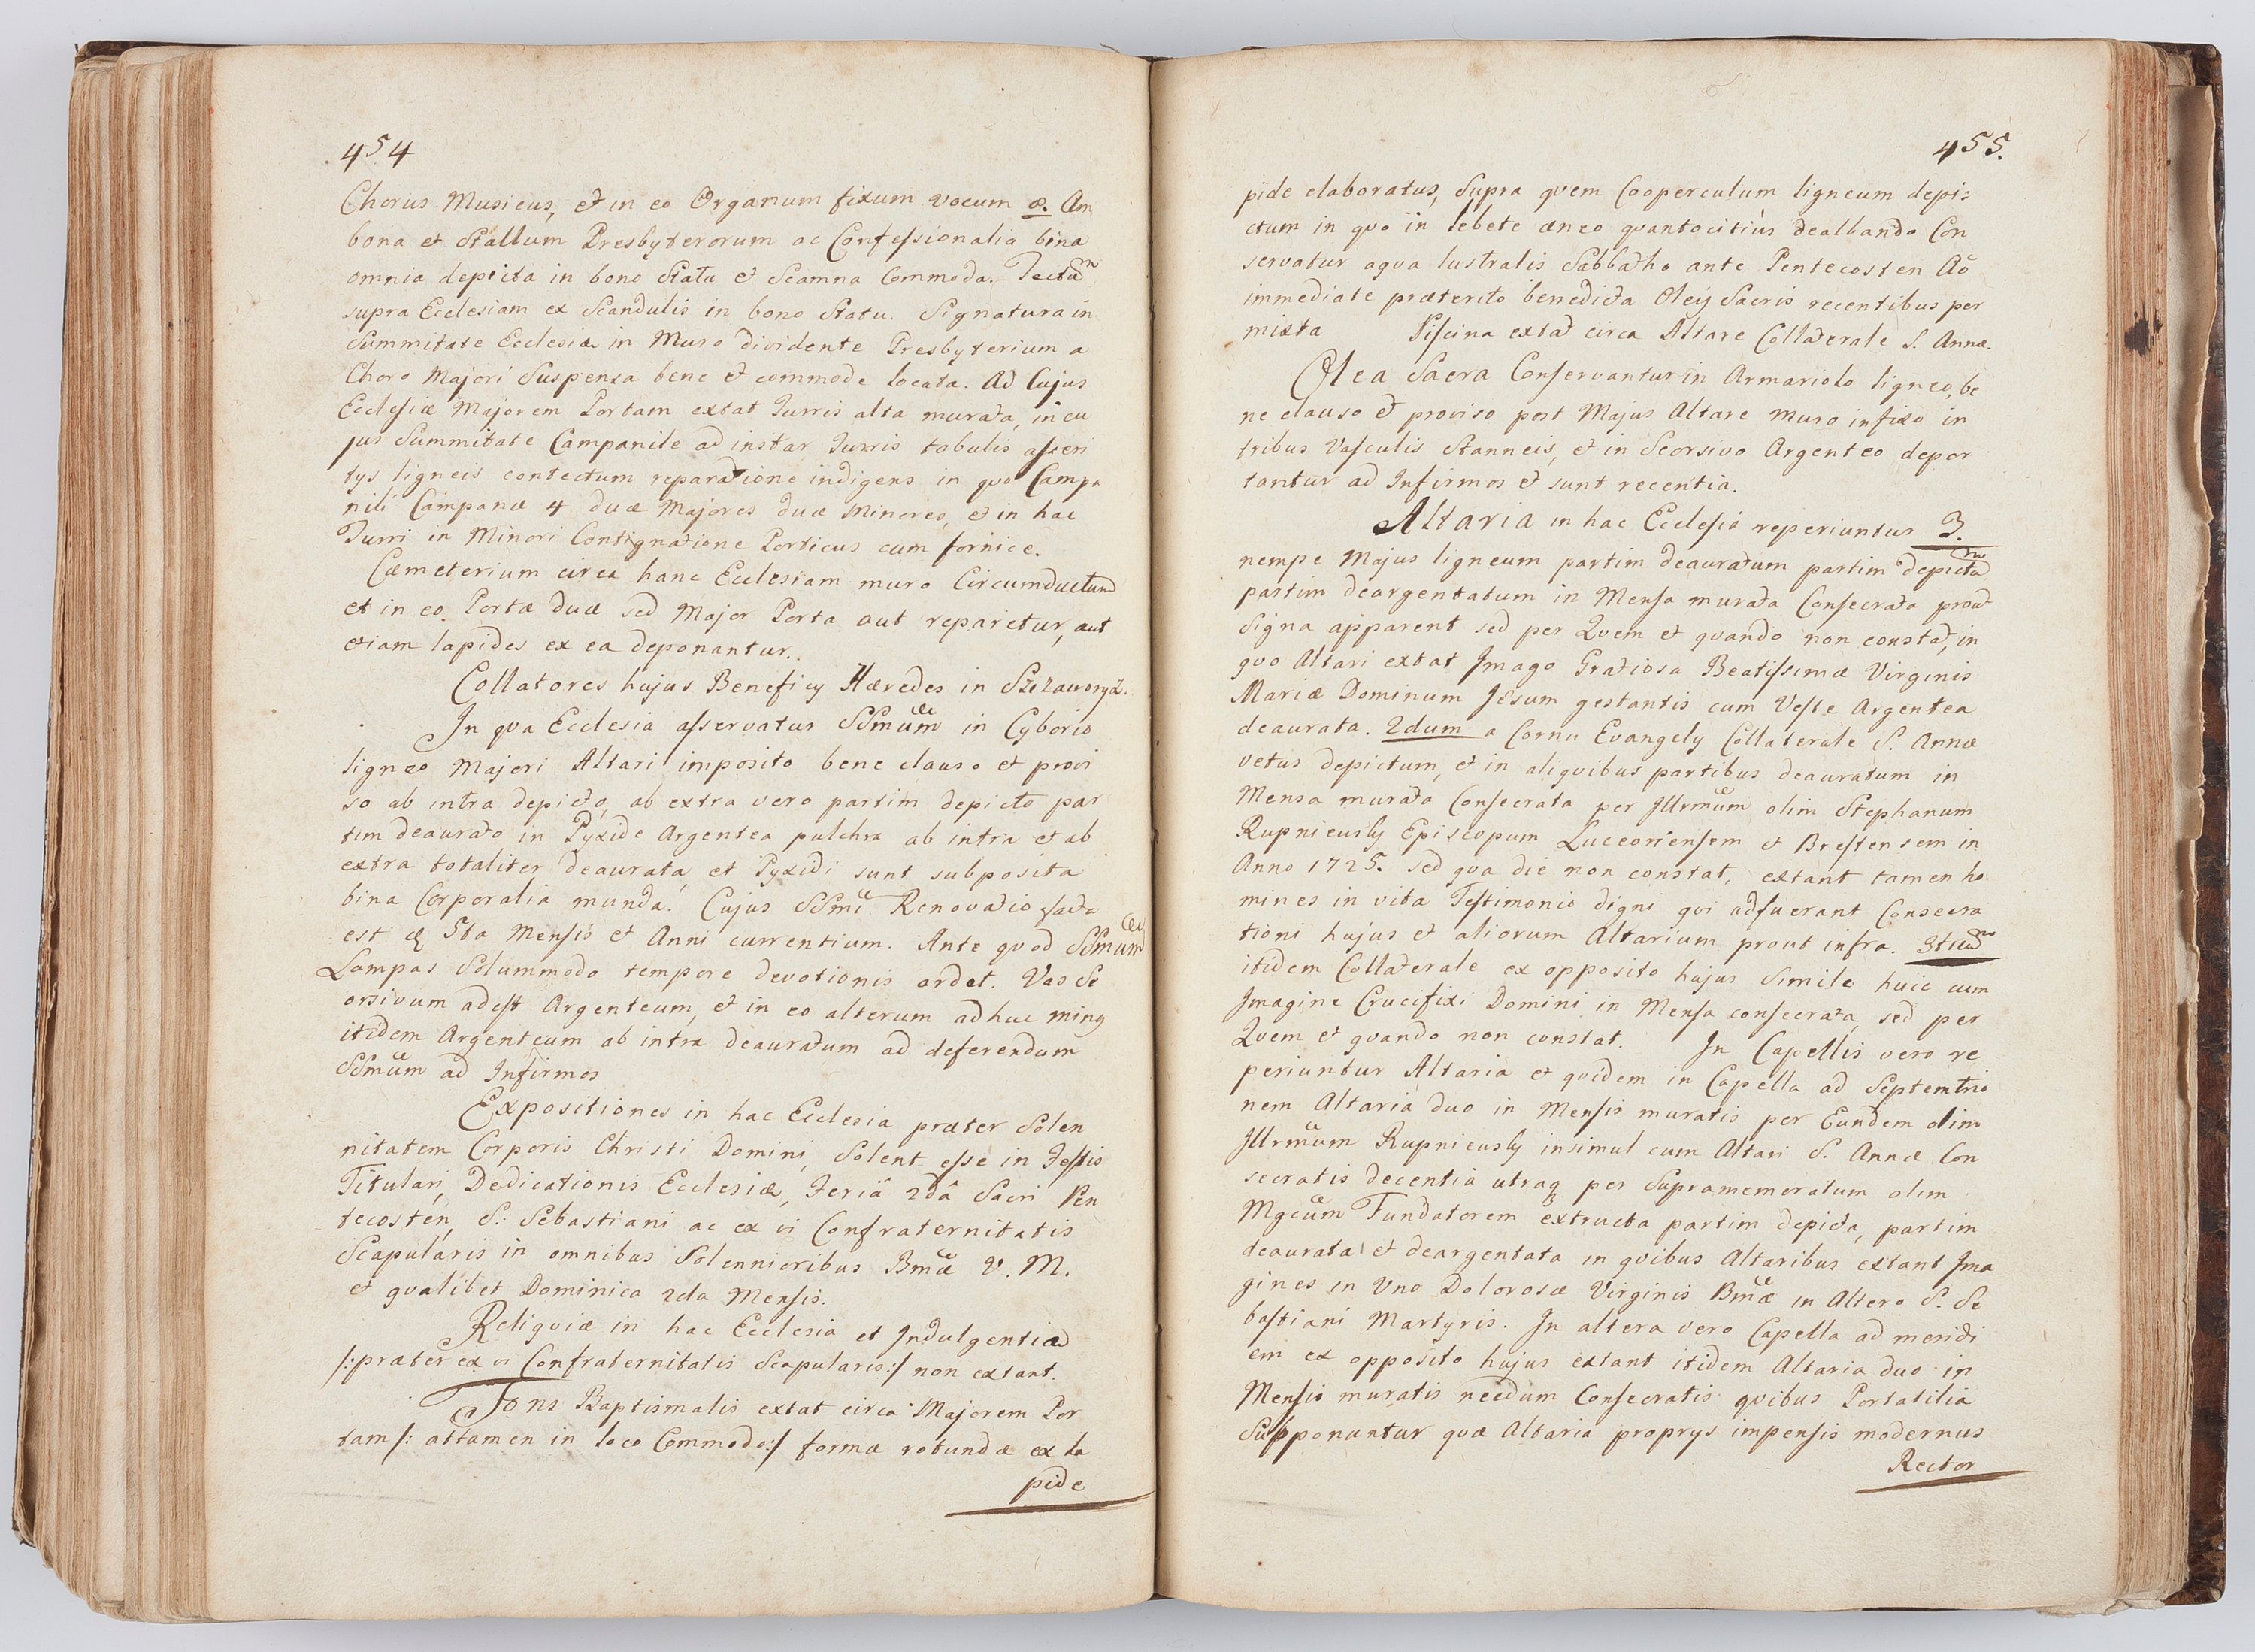 454
Chorus Musicus, et in eo Organum fixum vocum 8. Am
bona et Stallum Presbyterorum ac Confessionalia bina
omnia depicta in bono Statu et Scamna Commoda. Tectum
supra Ecclesiam ex Scandulis in bono Statu. Signatura in
Summitate Ecclesiæ in Muro dividente Presbyterium a
Choro Majori Suspensa bene et commode locata. Ad Cujus
Ecclesiæ Majorem Portam extat Turris alta murata, in cu
jus Summitate Campanile ad instar Turris tabulis asseri
tys ligneis contectum reparatione indigens in quo Campa
nili Campanæ 4 duæ Majores duæ Minores, et in hac
Turri in Minori Contignatione Porticus cum fornice.
Cæmeterium circa hanc Ecclesiam muro Circumductum
et in eo Portæ duæ sed Major Porta aut reparetur, aut
etiam lapides ex ea deponantur.
Collatores hujus Beneficij Hæredes in
In qva Ecclesia asservatur SSmum in Cyborio
ligneo Majori Altari imposito bene clauso et provi
so ab intra depicto, ab extra vero partim depicto par
tim deaurato in Pyxide Argentea pulchra ab intra et ab
extra totaliter deaurata, et Pyxidi sunt subposita
bina Corporalia munda. Cujus SSmi Renovatio facta
est 5ta Mensis et Anni currentium. Ante quod SSmum
Lampas Solummodo tempore devotionis ardet. Vas Se
orsivum adest Argenteum, et in eo alterum adhuc ming
itidem Argenteum ab intra deauratum ad deferendum
SSmum ad Infirmos
Expositiones in hac Ecclesia præter Solen
nitatem Corporis Christi Domini, Solent esse in Festis
Titulari, Dedicationis Ecclesiæ, Feriâ 2dâ Sacri Pen
tecosten, S: Sebastiani ac ex vi Confraternitatis
Scapularis in omnibus Solennioribus Bmæ V. M.
et qvalibet Dominica 2da Mensis.
Reliqviæ in hac Ecclesia et Indulgentiæ
/:præter ex vi Confraternitatis Scapularis:/ non extant.
Fons Baptismalis extat circa Majorem Por
tam /: attamen in loco Commodo:/ formæ rotundæ ex la
pide
455.
pide elaboratus, Supra qvem Cooperculum ligneum depi=
ctum in qvo in lebete æneo qvantocitiùs dealbando Con
servatur aqva lustralis Sabbatho ante Pentecosten Ao
immediate præterito benedicta Oleis Sacris recentibus per
mixta Piscina extat circa Altare Collaterale S. Annæ.
Olea Sacra Conservantur in Armariolo ligneo, be
ne clauso et proviso post Majus Altare muro infixo in
tribus Vasculis Stanneis, et in Seorsivo Argenteo depor
tantur ad Infirmos et sunt recentia.
Altaria in hac Ecclesia reperiuntur 3.
nempe Majus ligneum partim deauratum partim depictum
partim deargentatum in Mensa murata Consecrata prout
Signa apparent sed per Qvem et qvando non constat, in
qvo Altari extat Imago Gratiosa Beatissimæ Virginis
Mariæ Dominum Jesum gestantis cum Veste Argentea
deaurata. 2dum a Cornu Evangely Collaterale S. Annæ
vetus depictum, et in aliqvibus partibus deauratum in
Mensa murata Consecrata per Illrmum olim Stephanum
Rupniewsky Episcopum Luceoriensem et Brestensem in
Anno 1725. sed qva die non constat, extant tamen ho
mines in vita Testimonio digni qvi adfuerant Consecra
tioni hujus et aliorum Altarium prout infra. 3tium
itidem Collaterale ex opposito hujus Simile huic cum
Imagine Crucifixi Domini in Mensa consecrata, sed per
Qvem et qvando non constat. In Capellis vero re
periuntur Altaria et qvidem in Capella ad Septemtrio
nem Altaria duo in Mensis muratis per Eundem olim
Illrmum Rupniewsky insimul cum Altari S. Annæ Con
secratis decentia utraq per Supramemoratum olim
Mgcum Fundatorem extructa partim depicta, partim
deaurata et deargentata in qvibus Altaribus extant Ima
gines in Uno Dolorosæ Virginis Bmæ in Altero S. Se
bastiani Martyris. In altera vero Capella ad meridi
em ex opposito hujus extant itidem Altaria duo in
Mensis muratis necdum Consecratis qvibus Portatilia
Supponuntur qvæ Altaria proprys impensis modernus
Rector